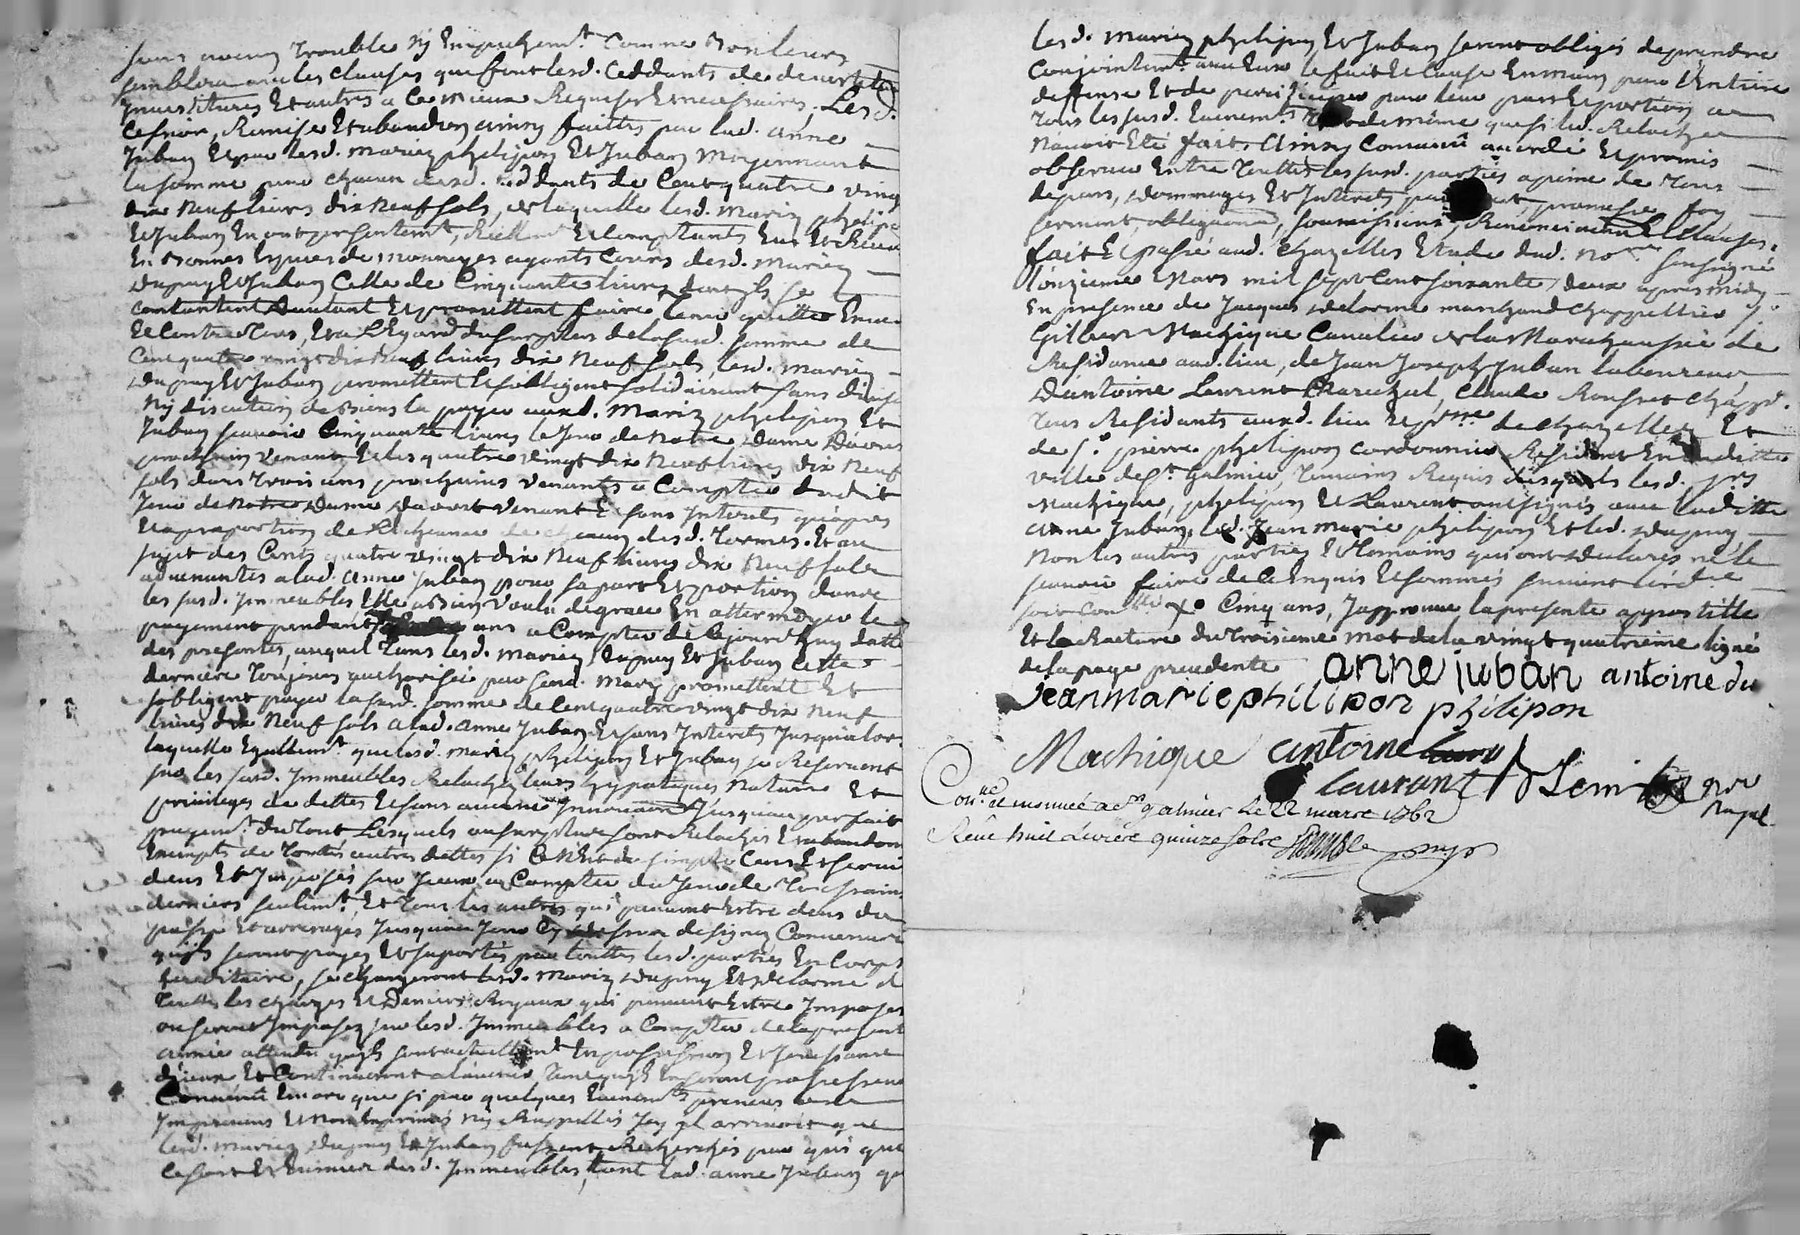 sans aucun trouble ny Empechem.t Comme Bon leurs
semblera avec les clauses que font lesd. Ceddants de devestitte
Investitures Et autres a ce mieux Requises Et necessaires, Les d.
Cession, Remise Et abandon ainsy faittes par lad. anne
Juban Et par lesd. mariez philipon Et Juban moyennant
la somme pour chacun desd. Ceddants de Cent quatre vingt
dix neuf livres dix neuf sols, de laquelle lesd. mariez philipon
Et Juban En ont presentem.t, Et Comptants Eus Et Receu
En Bonnes Especes de monnoyes ayants Cours desd. mariez
Dupuy Et Juban Celle de Cinquante livres dont ils se
contentent d'autant Et promettent faire tenir quitte Envers
Et Contre tous, Et a L'Egard du surplus de lasusd. somme de
Cent quatre vingt dix neuf livres dix neuf sols, lesd. mariez
Dupuy Et Juban promettent Et s'obligent solidairement sans division
Ny discution de Biens la payer auxd. Mariez philipon Et
Juban scavoir Cinquante livres le Jour de Notre Dame Daoust
prochain venant Et les quatre vingt dix neuf livres dix neuf
sols dans trois ans prochains venants a Compter dudit
Jour de Notre Dame Daoust venant Et sans Interets qu'apres
Et a proportion de L'Echeance de chacun desd. Termes. Et au
sujet des Cents quatre vingt dix neuf livres dix neuf sols
advenantes a lad. anne Juban pour sa part Et portion dans
les susd. Immeubles Elle a Bien voulu de grace En attermoyer le
payement pendant ans a Compter de Cejourd'huy datte
des presentes, auquel tems lesd. mariez Dupuy Et Juban Cette
derniere toujours authorisée par sond. Mary promettent Et
s'obligent payer lasusd. somme de Cent quatre vingt dix neuf
livres dix neuf sols a lad. anne Juban Et sans Interets Jusqu'alors
laquelle Egallem.t que lesd. mariez philipon Et Juban se Reservent
sur les susd. Immeubles Relachés leurs hypoteques Nature Et
privileges de dettes Et sans aucune Jusqu'au parfait
payem.t Du tout Lesquels susd. sont Relachés Et abandonnés
Exempts de touttes autres dettes si Ce N'est de simple Cens Et servis
deus Et Imposés sur Iceux a Compter du Jour de Toussaints
derniers seulem.t, Et tous les autres qui peuvent Estre deus du
passé Et arrerages Jusqu'au Jour Cy dessus designez Convenu
qu'ils seront payés Et suportés par touttes lesd. parties En Corps
hereditaire, se chargeront lesd. Mariez Dupuy Et de
touttes les charges Et Deniers Royaux qui peuvent Estre Imposés
ou seront Imposez sur lesd. Immeubles a Compter de la presente
année attendu qu'ils sont actuellem.t En possession Et Jouissance
d'iceux Et Continueront a l'avenir
Convenu Encore que si par quelques Evenem.ts
Imprevus Et Non Exprimés Ny Rappellés Icy Il arrivoit que
lesd. mariez Dupuy Et Juban fussent Recherchés pour qui que
Ce soit Et Evincer desd. Immeubles, tant lad. anne Juban que
lesd. mariez philipon Et Juban seront obligés de prendre
Conjointem.t avec Eux le fait Et Cause En main pour L'Entiere
deffense Et de par leur part Et portion a
tous les susd. Evenem.ts tout de même que si led. Relachee
n'avoit Eté fait. Ainsy Convenu accordé Et promis
observer Entre Touttes les susd. parties a peine de tous
depans, Dommages Et Interets par , promesse, foy
serment, obligations, soumissions, Renonciations Et Clauses.
fait Et passé aud. Chazelles Etude dud. no.re soussigné
l'onzieme Mars mil sept Cent soixante deux apres midy
En presence de Jacques Delorme marchand chappellier Et S.r
Gilbert Machique Cavalier de la Marechaussée de
Residance aud. lieu, de Jean Joseph Juban laboureur
D'antoine Laurent Marechal, Claude chapp.r
Tous Residants aud. lieu Et p.sse de Chazelles Et
de S.r pierre philipon Cordonnier Resident En laditte
ville de S.t Galmier, Temoins Requis desquels lesd. S.rs
Machique, philipon Et Laurent ont signés avec laditte
Anne Juban, led. Jean Marie philipon Et led. Dupuy,
Non les autres parties Et Temoins qui ont Declarés ne le
scavoir faire de Ce Enquis Et sommés
soit Con.llé Xo Cinq ans, J'approuve la presente appostille
Et la Rature du Troisieme mot de la vingt quatrieme ligne
de la page precedente anne iuban antoine du
Jean marie philipon philipon
Machique antoine
laurant no.re
Royal
Con.lé et insinué a S.t galmier Le 22 marse 1762
Reçu huit Livrese quinze sols